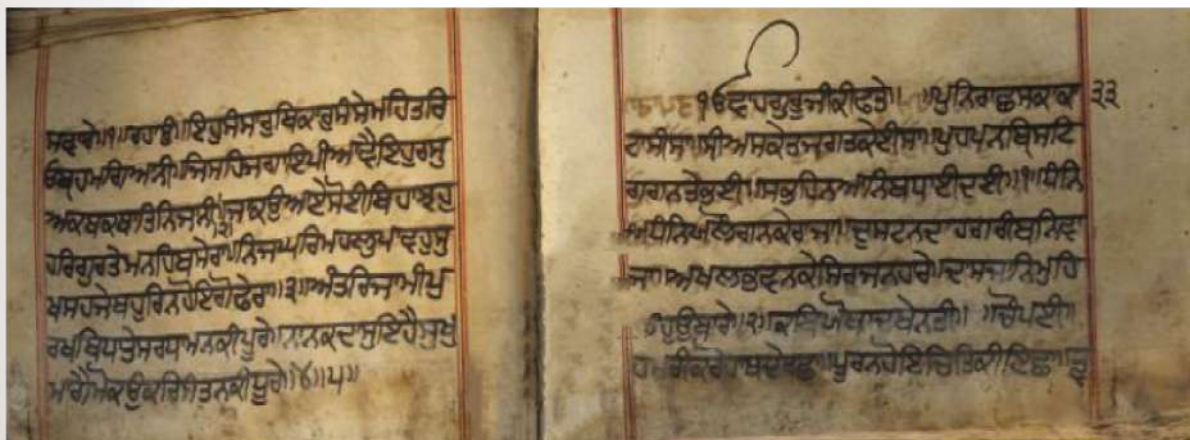 ਸਵਾਰੇ॥੧॥ਰਹਾਉ॥ਇਹੁਸੰਸਾਰੁਬਿਕਾਰੁਸੰਸੇਮਹਿਤਰਿ
ਓਬ੍ਰਹਮਗਿਆਨੀ॥ਜਿਸਹਿਜਗਾਇਪੀਆਵੈਇਹੁਰਸੁ
ਅਕਥਕਥਾਤਿਨਿਜਾਨੀ॥੨॥ਜਾਕਉਆਏਸੋਈਬਿਹਾਝਹੁ
ਹਰਿਗੁਰਤੇਮਨਹਿਬਸੇਰਾ॥ਨਿਜਘਰਿਮਹਲੁਪਾਵਹੁਸੁ
ਖਸਹਜੇਬਹੁਰਿਨਹੋਇਗੋਫੇਰਾ॥੩॥ਅੰਤਰਿਜਾਮੀਪੁ
ਰਖਬਿਧਾਤੇਸਰਧਾਮਨਕੀਪੂਰੇ॥ਨਾਨਕਦਾਸੁਇਹੈਸੁਖੁ
ਮਾਗੈਮੋਕਉਕਰਿਸੰਤਨਕੀਧੂਰੇ॥੪॥੫॥
ੴਵਾਹਗੁਰੂਜੀਕੀਫਤੇ॥ ॥ਪੁਨਿਰਾਛਸਕਾਕਾ ੩੩
ਟਾਸੀਸਾ॥ਸ੍ਰੀਅਸਕੇਤਜਗਤਕੇਈਸਾ॥ਪੁਹਪਨਬ੍ਰਿਸਟਿ
ਗਗਨਤੇਭਈ॥ਸਭਹਿਨਆਨਿਬਧਾਈਦਈ॥੧॥ਧੰਨਿ
ਧੰਨਿਲੋਗਨਕੇਰਾਜਾ॥ਦੁਸਟਨਦਾਹਗਰੀਬਨਿਵਾ
ਜਾ॥ਅਖਲਭਵਨਕੇਸਿਰਜਨਹਾਰੇ॥ਦਾਸਜਾਨਿਮੁਹਿ
ਲੇਹੁਉਬਾਰੇ॥੨॥ਕਬਿਯੋਬਾਚਬੇਨਤੀ॥ ॥ਚੌਪਈ॥
ਹਮਰੀਕਰੋਹਾਥਦੇਰਛਾ॥ਪੂਰਨਹੋਇਚਿਤਕੀਇਛਾ॥